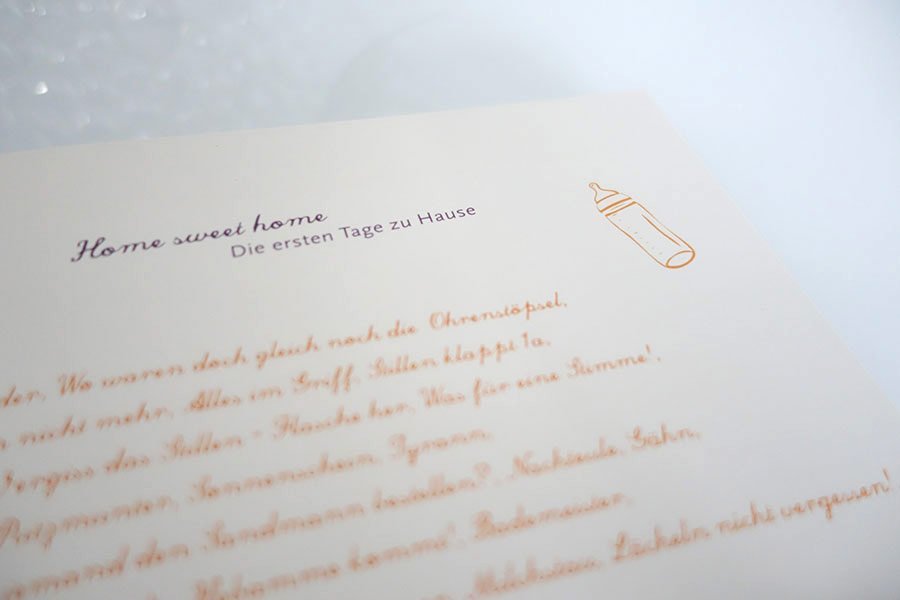 Home sweet home
Die ersten Tage zu Hause
der, Wo waren doch gleich noch die Ohrenstöpsel,
nicht mehr, Alles im Griff, Stillen klappt 1a,
Vergiss das Stillen - Flasche her, Was für eine Stimme!,
Putzmunter, Sonnenschein, Tyrann,
den Sandmann bestellen?, Nachteule, Gähn,
Hebamme kommt!, Bademeister,
Lächeln nicht vergessen!